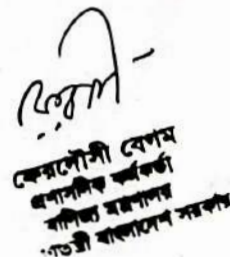 ফেরদৌসী বেগম
প্রশাসনিক কর্মকর্তা
বাণিজ্য মন্ত্রণালয়
বাংলাদেশ সরকার